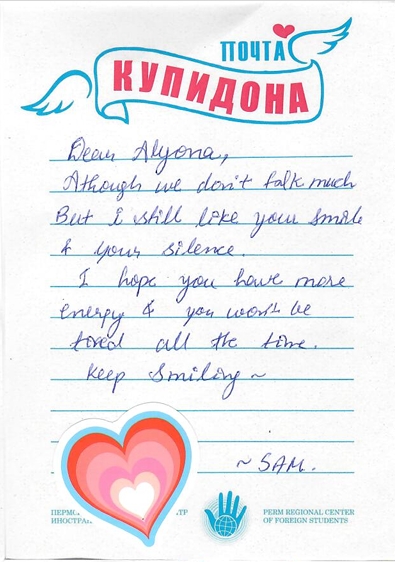 ПОЧТА
КУПИДОНА
Dear Alyona,
Athough we don't talk much
But i still like your smile
& your silence.
I hope you have more
energy & you won't be
tired all the time.
Keep Smiling ~
~ SAM.
PERM REGIONAL CENTER
OF FOREIGN STUDENTS